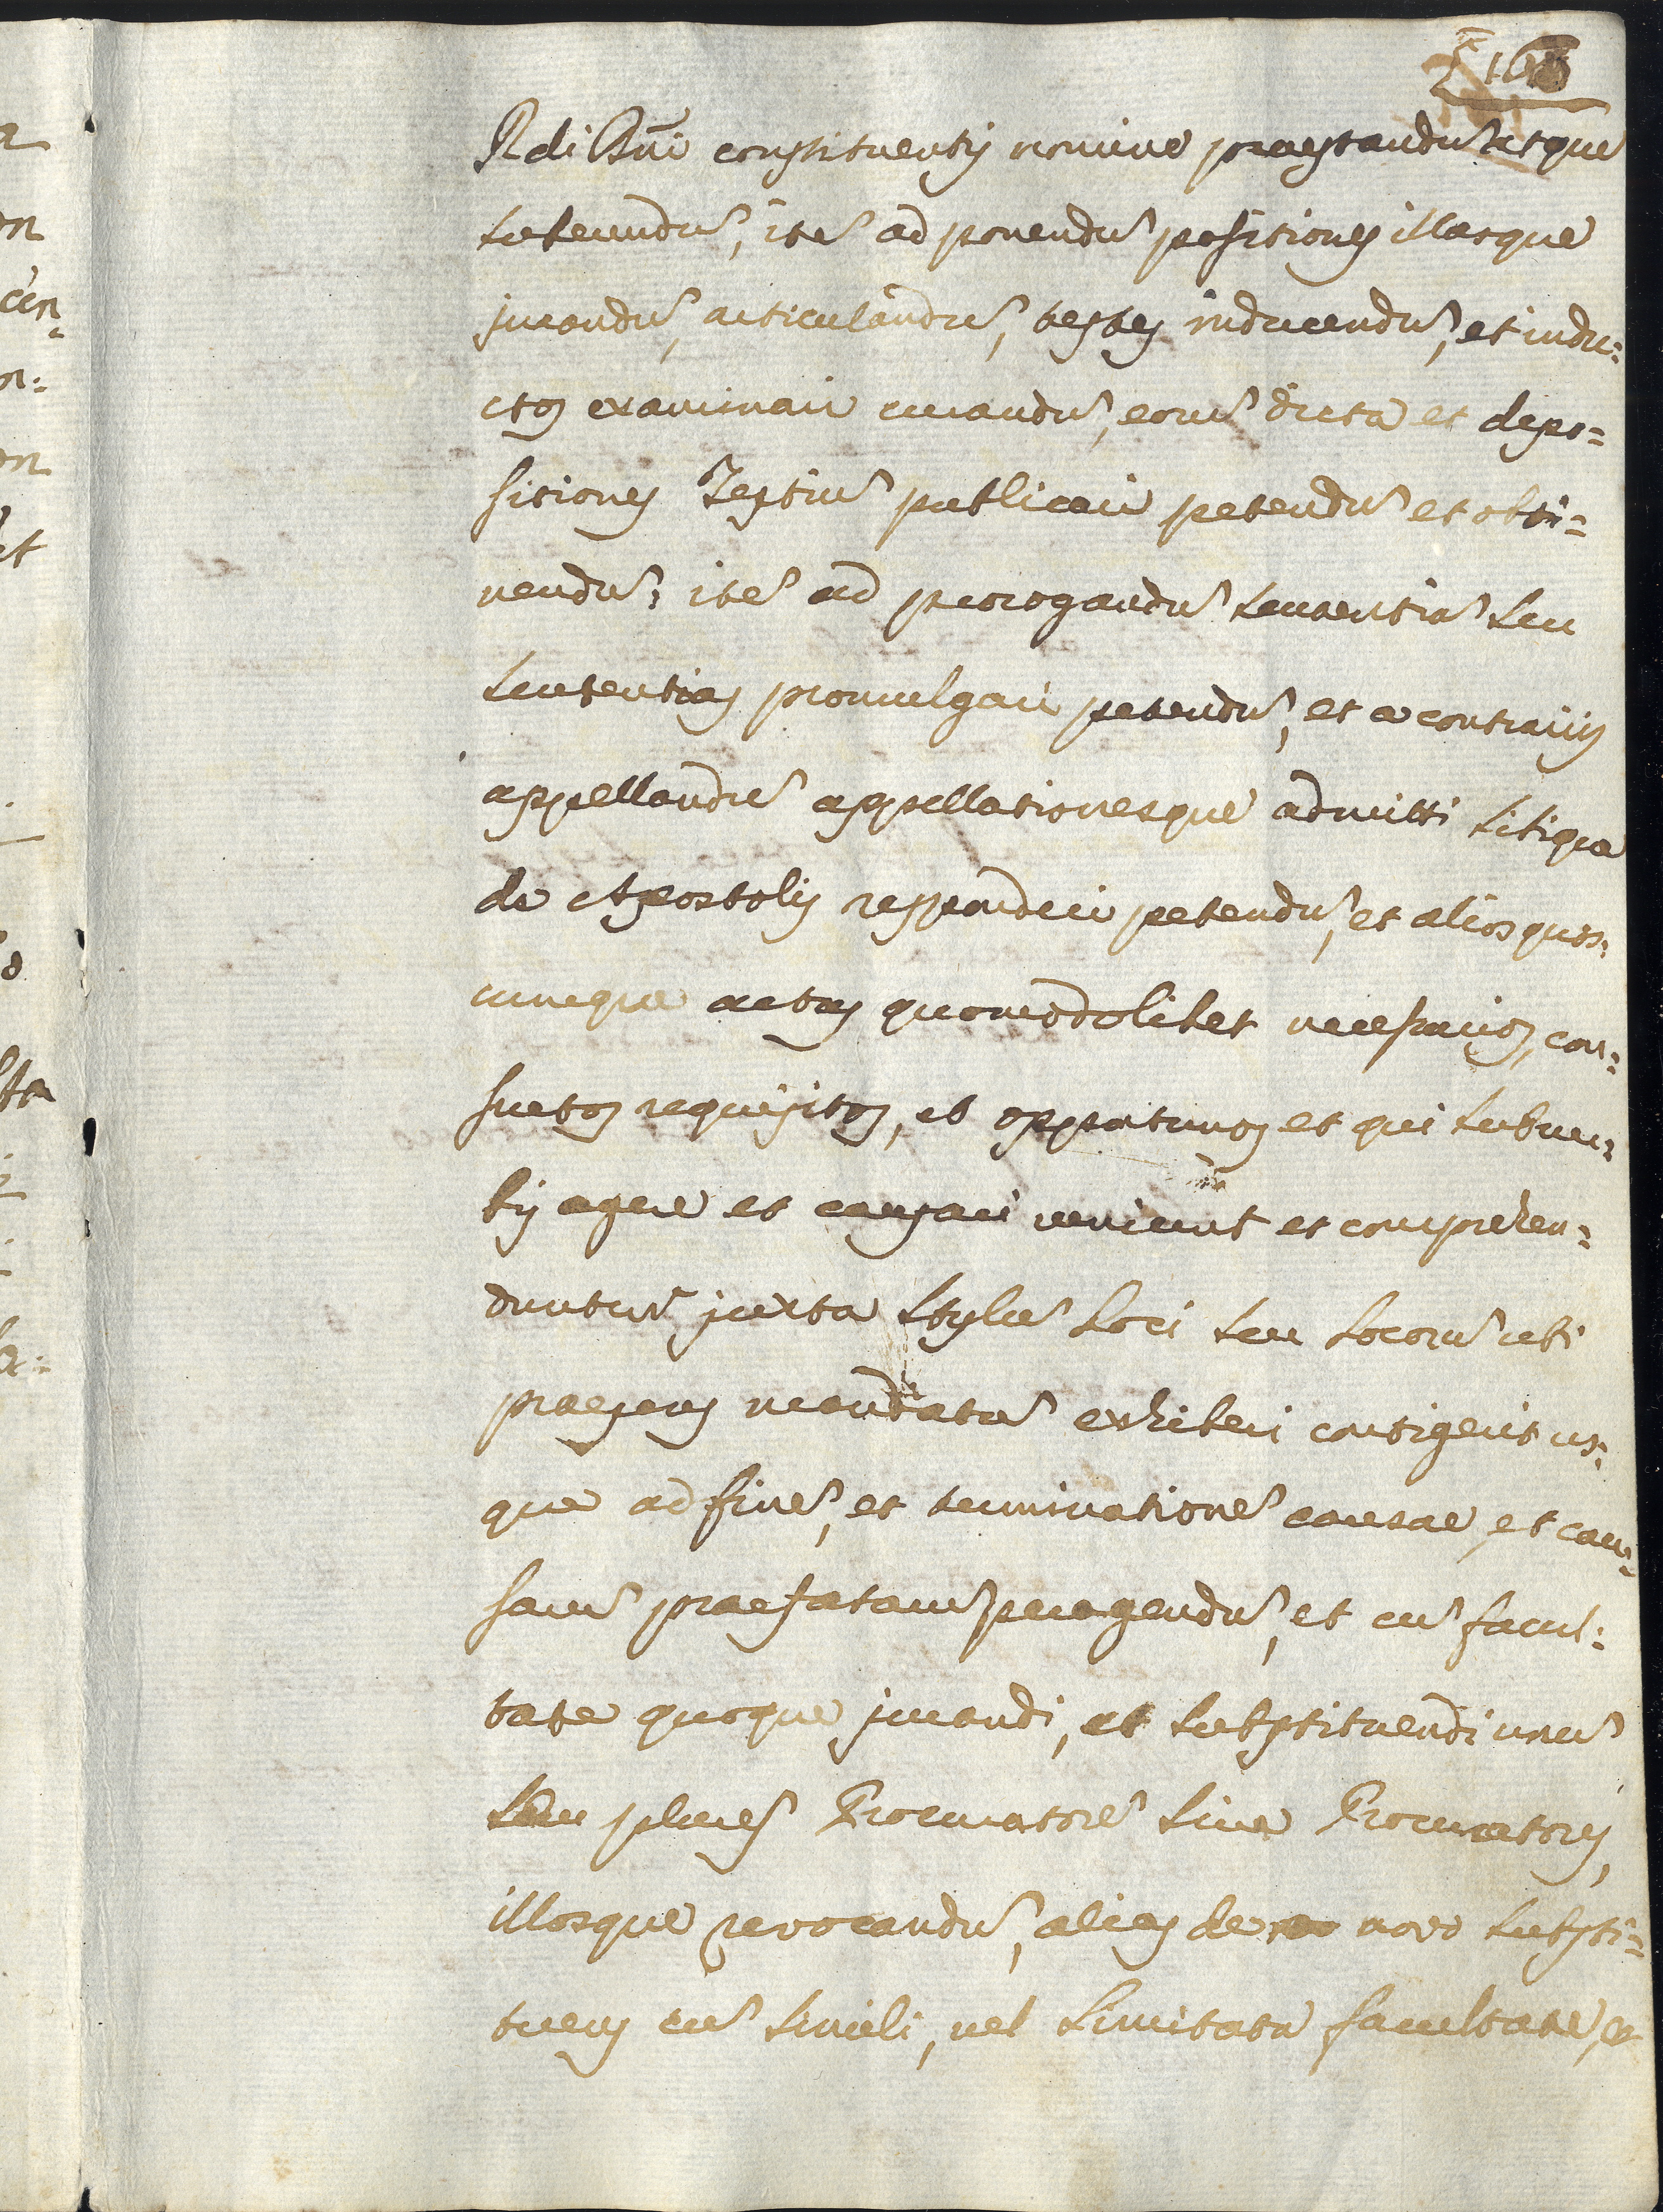 168
Rdi Dni constituentis nomine praestandū atque
subeundū, itē ad ponendū positiones illasque
jurandū, articulandū, testes inducendū, et indu=
ctos examinari curandū, eorū dicta et depo=
sitiones Testiū publicari petendū et obti=
nendū; itē ad prorogandū sententiā seu
sententias promulgari petendū, et a contrarijs
appellandū appellationesque admitti sitique
de Apostolis responderi petendū, et alios quos=
cumque actus quomodolibet necessarios, con=
suetos requisitos, et opportunos et qui sub ver=
bis agere et causari veniunt et comprehen=
duntur juxta stylū Loci seu Locorū ubi
praesens mandatū exhiberi contigerit us=
que ad finē, et terminationē causae, et cau=
sarū praefatarū peragendū, et cū facul=
tate quoque jurandi, et substituendi unū
seu plures Procuratorē sive Procuratores,
illosque revocandū, alios de novo substi=
tuens cū simili, vel limitata facultate, et